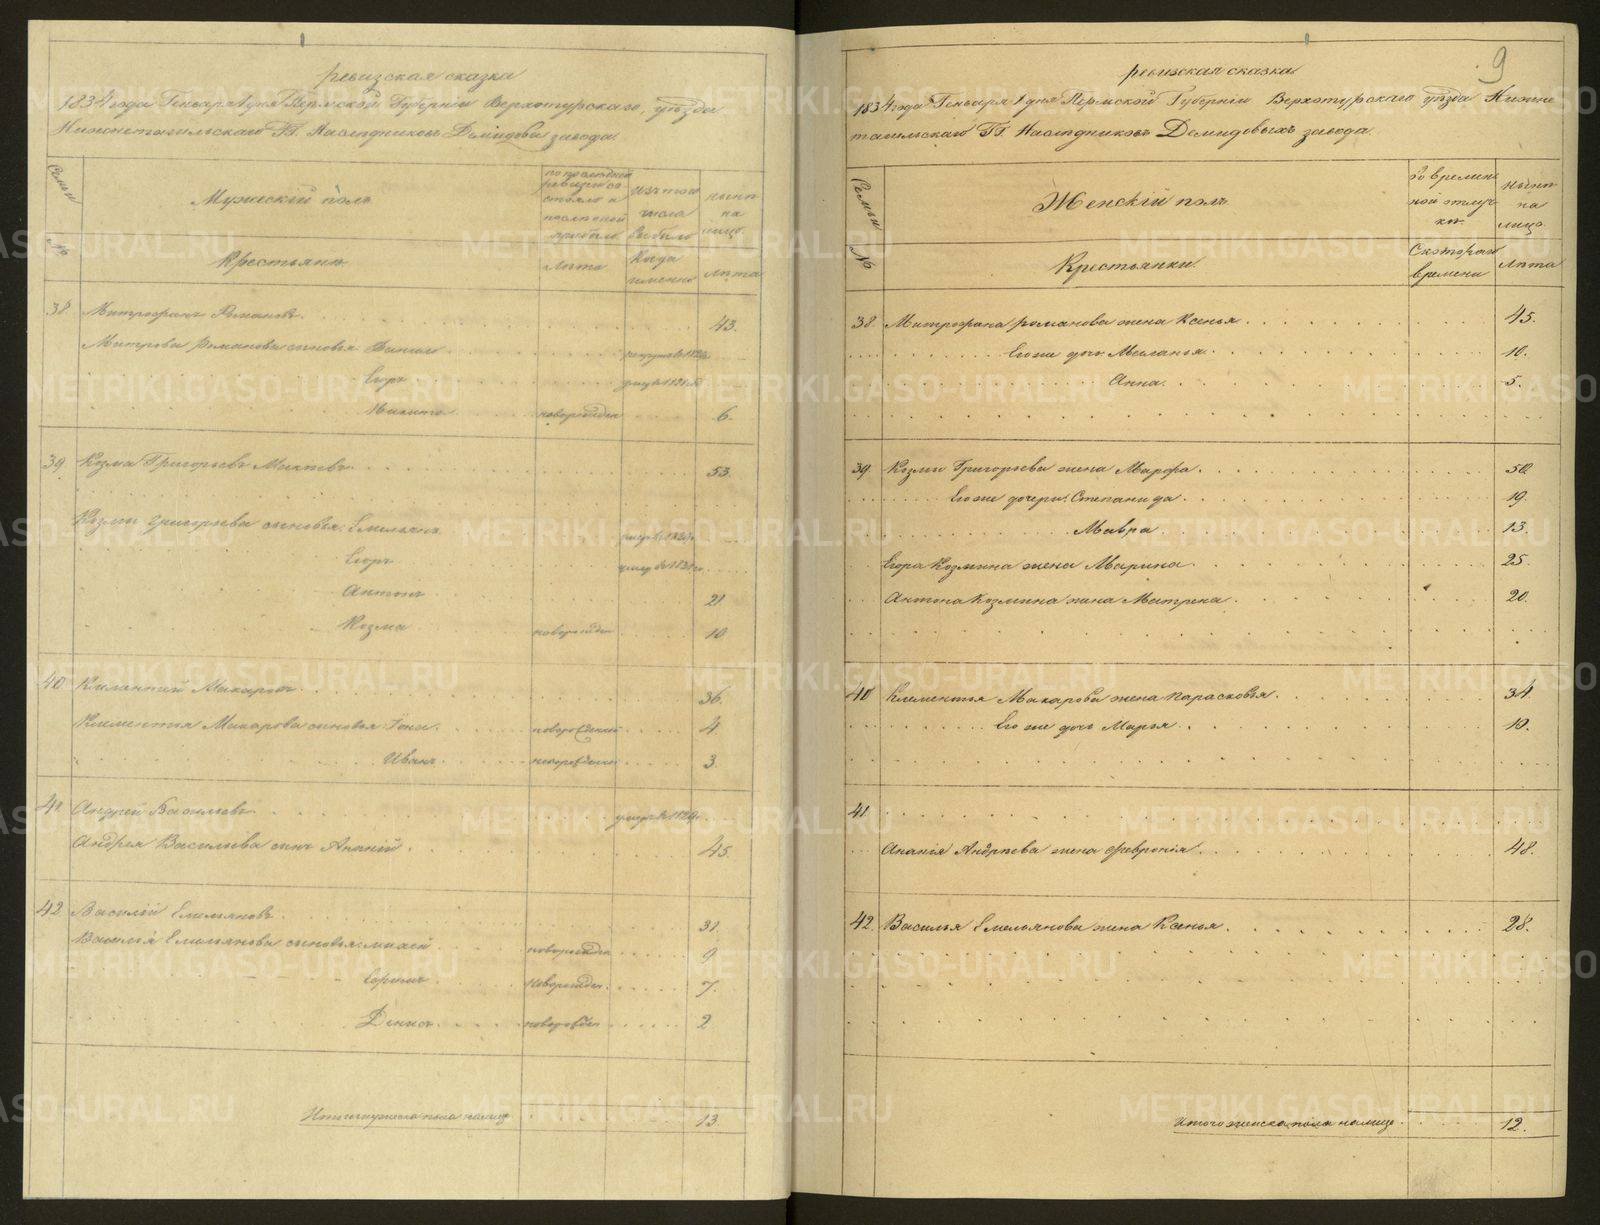 ревизская сказка
1834 года Генваря 1 дня Пермской Губернїи Верхотурскаго уѣзда
Нижнетагильскаго Гг. Наслѣдниковъ Демидовы завода.
Семьи
№
Мужескїй полъ
по последней ревизїи состояло и после оной прибыло
Изъ того числа выбыло
ныне на лицо.
Крестьяне
Лѣта
Когда именно
Лѣта
38 Митрофанъ Романовъ. 43.
Романова сыновья: Данило
Егоръ
Никита новорожден 6.
39 Козма Григорьевъ 53.
Козмы Григорьева сыновья: Емельянъ
Егоръ
Антонъ 21
Козма новорожден 10
40 Макаровъ 36.
Клементья Макарова сыновья: новорожденный 4
Иванъ новорожденный 3.
41 Андрей Васильевъ
Андрея Васильева сынъ Ананїй 45.
42 Василїй Емельяновъ 31.
Василья Емельянова сыновья: новорожден 9
новорожден. 7.
Денисъ новорожден 2
Итого мужеска пола налицо 13.
9
ревизская сказка
1834 года Генваря 1 дня Пермской Губернїи Верхотурскаго уѣзда Нижне
тагильскаго Гг. Наслѣдниковъ Демидовыхъ завода.
Семьи
№
Женскїй полъ
во времянной отлучке.
ныне на лицо
Крестьянки.
Скотораго времени
Лѣта
38. Митрофана романова жена Ксенья 45.
Его же дочь Меланья 10.
Анна. 5.
39. Козмы Григорьева жена Марфа 50.
Его же дочери: Степанида 19.
Мавра 13.
Егора Козмина жена Марина 25.
Антона Козмина жена Матрена 20.
40 Клементья Макарова жена Парасковья. 34.
Его же дочь Марья 10.
41.
Ананїя Андрѣева жена Февронїя 48.
42. Василья Емельянова жена Ксенья. 28.
Итого женска пола налицо. 12.
METRIKI.GASO-URAL.RU